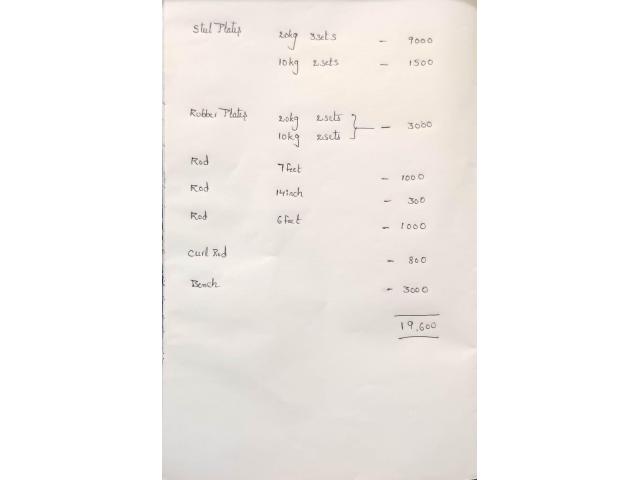 Steel Plates 20kg 3sets - 9000
10kg 2sets - 1500
Rubber Plates 20kg 2sets
10kg 2sets - 3000
Rod 7feet - 1000
Rod 14inch - 300
Rod 6feet - 1000
Curl Rod - 800
Bench - 3000
19,600